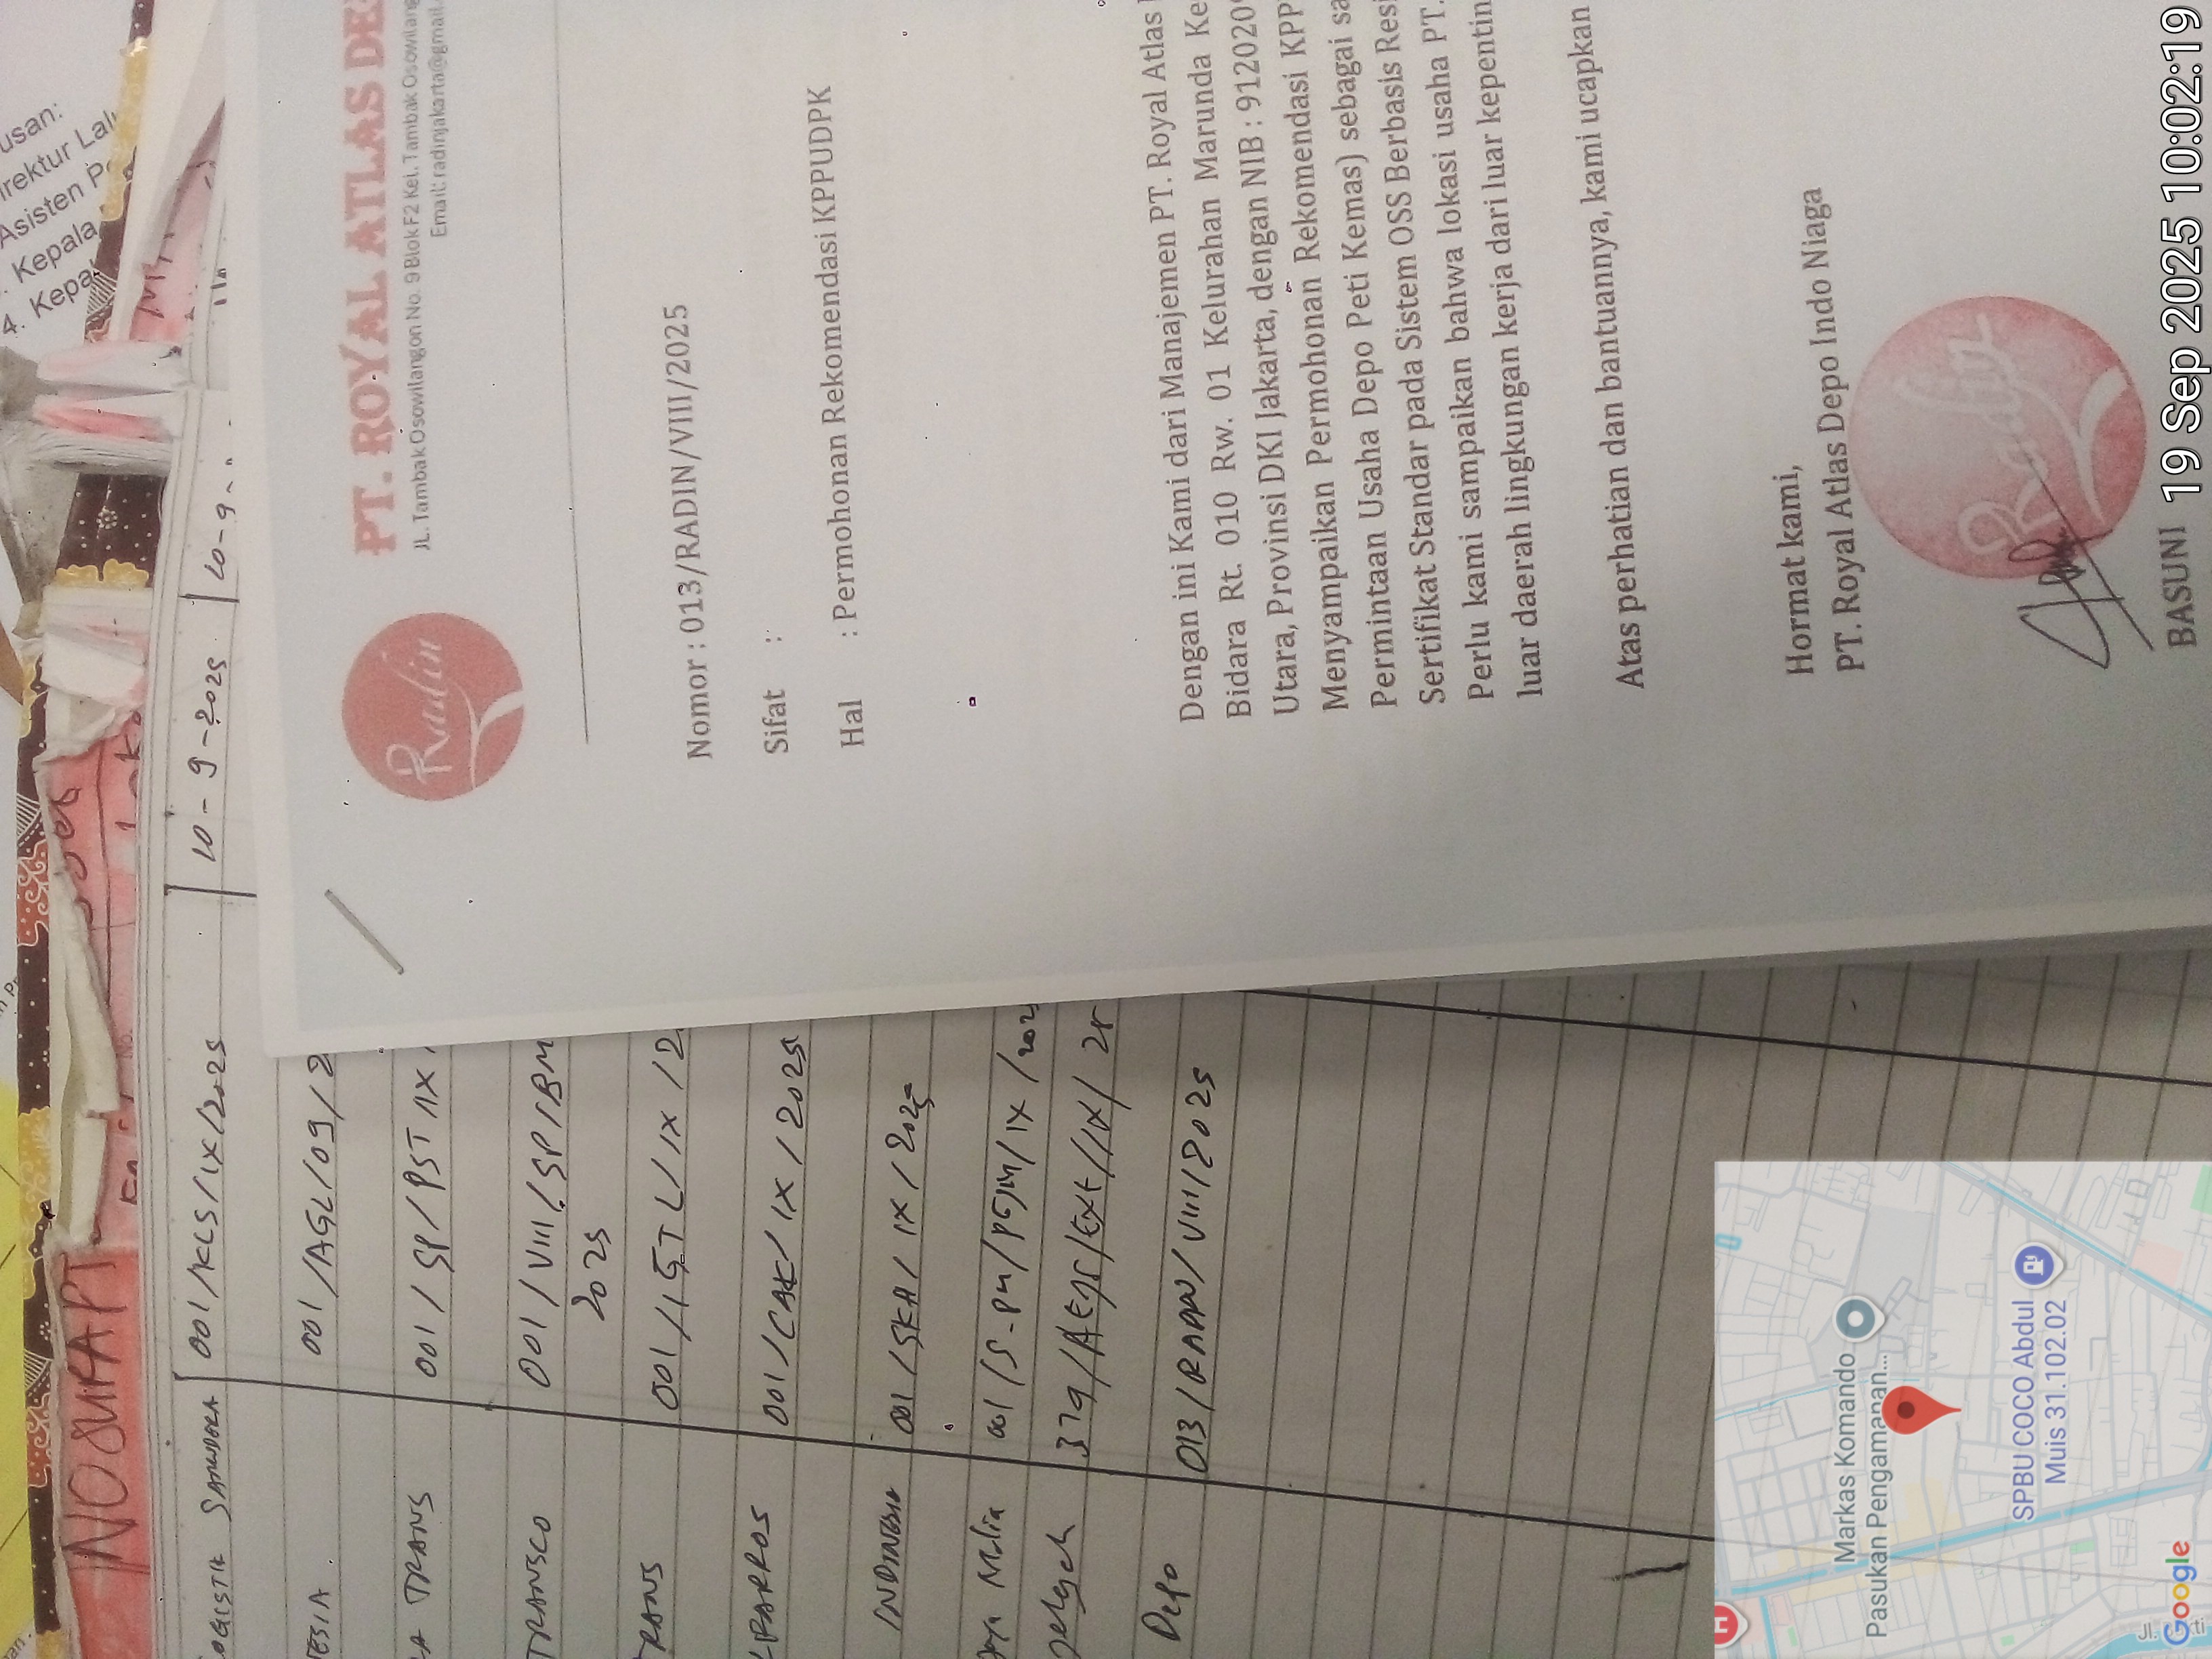 usan:
irektur Lalu
Asisten P
Kepala
4. Kepa
NO SURAT
10 - 9 - 2025
10 - 9
PT. ROYAL ATLAS DE
JL. Tambak Osowilangon No. 9 Blok F2 Kel. Tambak Osowilang
Email: radinjakarta@gmail.
Radin
Nomor : 013/RADIN/VIII/2025
Sifat :
Hal : Permohonan Rekomendasi KPPUDPK
Dengan ini Kami dari Manajemen PT. Royal Atlas
Bidara Rt. 010 Rw. 01 Kelurahan Marunda Ke
Utara, Provinsi DKI Jakarta, dengan NIB : 912020
Menyampaikan Permohonan Rekomendasi KPP
Permintaan Usaha Depo Peti Kemas) sebagai sa
Sertifikat Standar pada Sistem OSS Berbasis Resi
Perlu kami sampaikan bahwa lokasi usaha PT.
luar daerah lingkungan kerja dari luar kepentin
Atas perhatian dan bantuannya, kami ucapkan
Hormat kami,
PT. Royal Atlas Depo Indo Niaga
Radin
BASUNI
LOGISTIK SAMUDERA 001/KLS/IX/2025
ESIA 001/AGL/09/2
A TRANS 001/SP/PST/IX
TRANSCO 001/VIII/SP/BM
2025
TRANS 001/IGTL/IX/2
001/CAK/IX/2025
INDONESIA 001/SKA/IX/2025
Jaya Mulia 001/S-PM/PGJM/IX/202
Depo 013/RADIN/VIII/2025
Markas Komando
Pasukan Pengamanan...
SPBU COCO Abdul
Muis 31.102.02
H
Google
19 Sep 2025 10:02:19